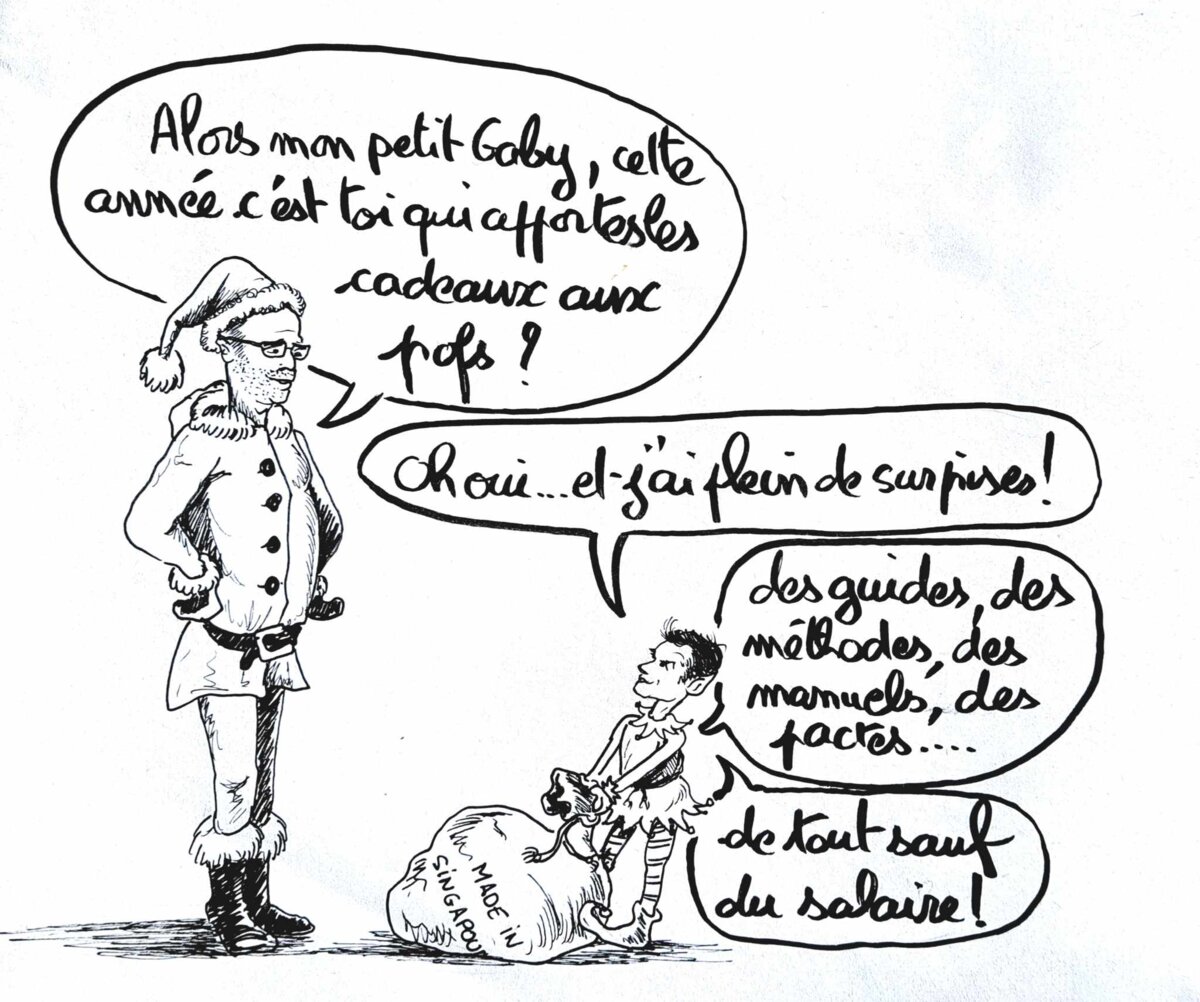 Alors mon petit Gaby, cette
année c'est toi qui apportes les
cadeaux aux
pofs ?
Oh oui... et j'ai plein de surprises !
des guides, des
méthodes, des
manuels, des
pactes.....
de tout sauf
du salaire !
MADE IN
SINGAPOU